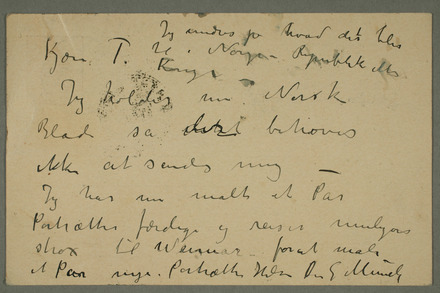 Jeg undres på hvad det blir
til i Norge – Republik ell.
Konge
Kjære T.
Jeg holder nu Norsk
Blade så det behøves
ikke at sendes mig
Jeg har nu malt et Par
Portrætter færdige og reiser muligens
strax til Weimar forat male
et Par nye Portrætter Hilsen Din E Munch